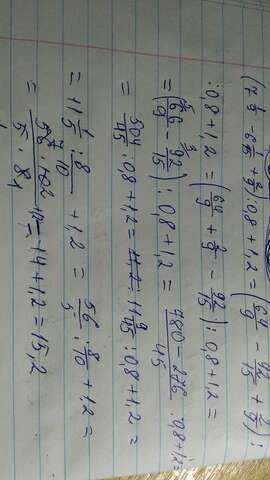 (7 1/9 - 6 2/15 + 2/9) : 0,8+1,2 = (64/9 - 92/15 + 2/9) :
: 0,8+1,2 = (64/9 + 2/9 - 92/15) : 0,8+1,2 =
= (66/9 - 92/15) : 0,8+1,2 = (780-276)/45 : 0,8+1,2=
= 504/45 : 0,8+1,2 = 11 9/45 : 0,8+1,2 =
= 11 1/5 : 8/10 + 1,2 = 56/5 : 8/10 + 1,2 =
= (56·10)/(5·8) +1,2 = 14+1,2 = 15,2